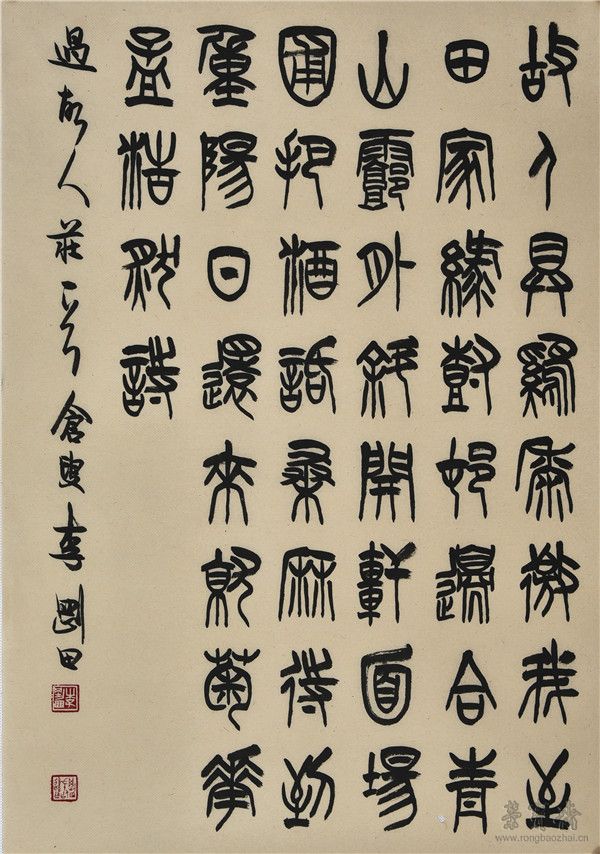 故人具雞黍邀我至
田家綠樹邨邊合青
山郭外斜開軒面場
圃把酒話桑麻待到
重陽日還來就菊華
孟浩然詩
過故人莊一首 倉叟李剛田
榮寶齋
www.rongbaozhai.cn